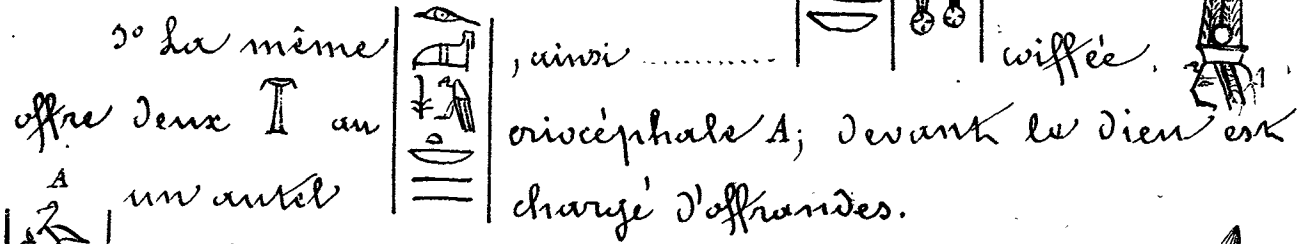 3° La même , ainsi .......... coiffée.
offre deux au criocéphale A; devant le dieu est
A
un autel chargé d'offrandes.